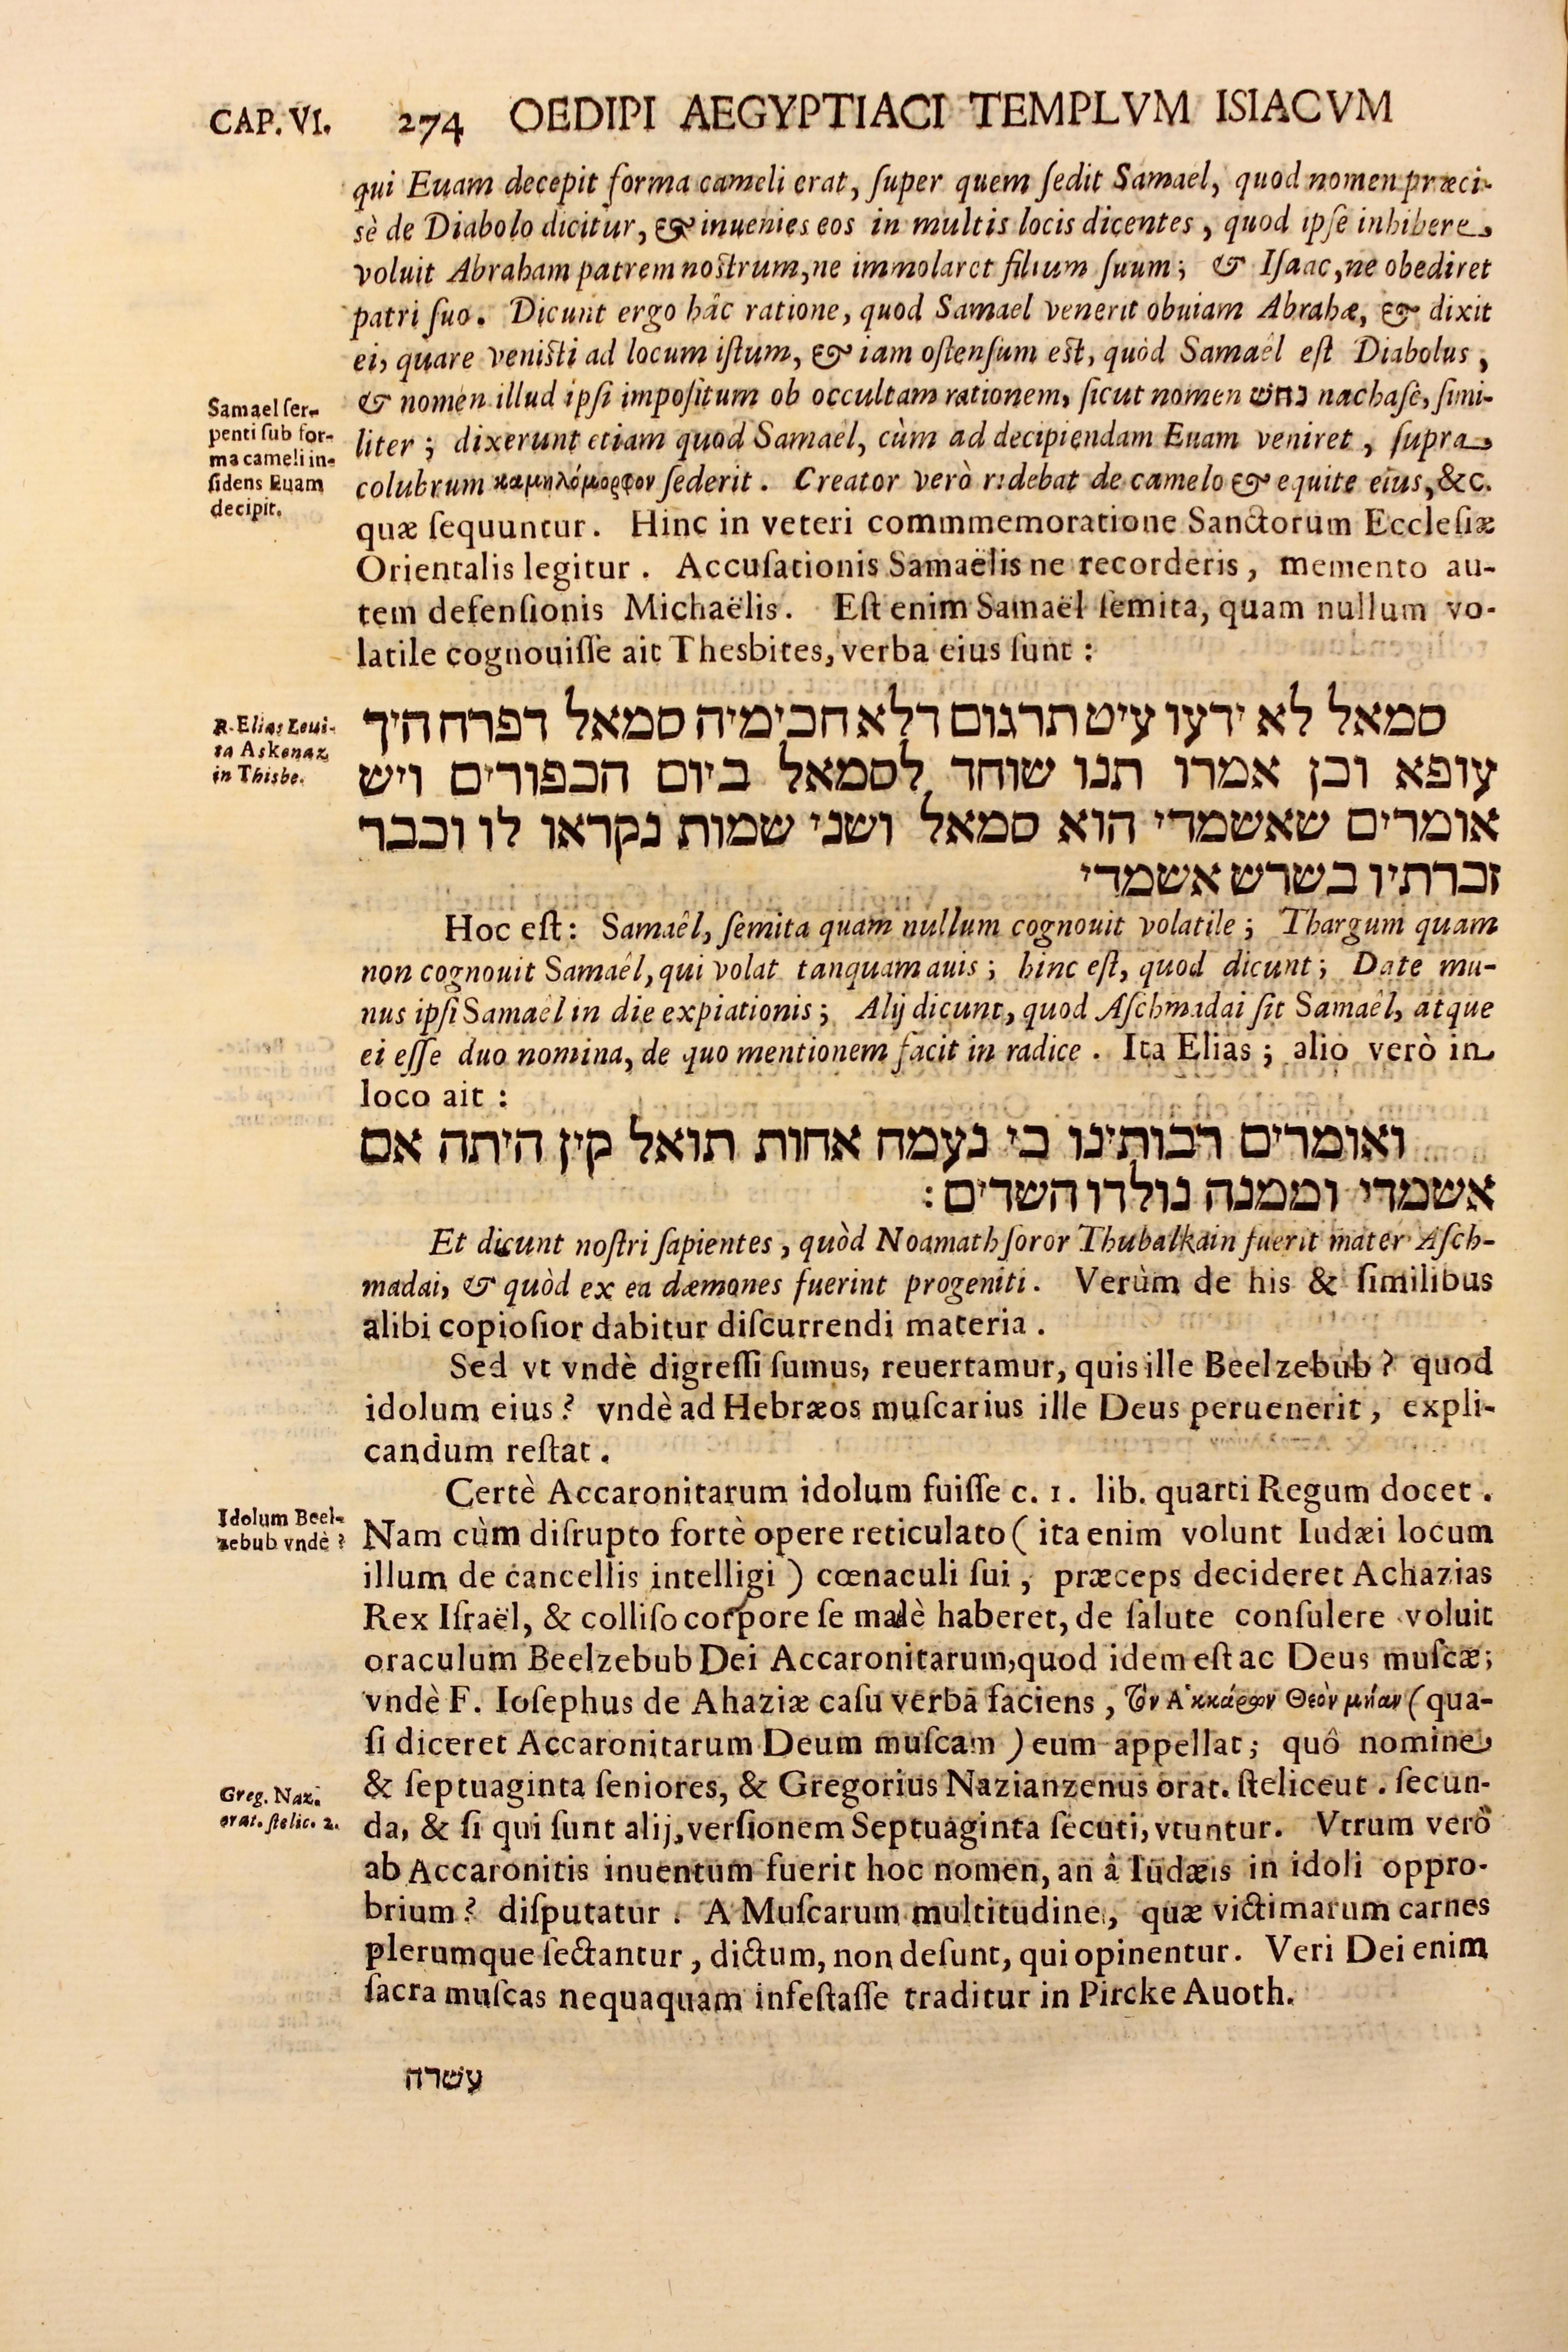 CAP. VI. 274 OEDIPI AEGYPTIACI TEMPLVM ISIACVM
qui Euam decepit forma cameli erat, ſuper quem ſedit Samael, quod nomen præci-
sè de Diabolo dicitur, & inuenies eos in multis locis dicentes, quod ipſe inhibere
voluit Abraham patrem noſtrum, ne immolaret filium ſuum; & Iſaac, ne obediret
patri ſuo. Dicunt ergo hâc ratione, quod Samael venerit obuiam Abrahæ, & dixit
ei, quare veniſti ad locum iſtum, & iam oſtenſum eſt, quòd Samaël eſt Diabolus,
& nomen illud ipſi impoſitum ob occultam rationem, ſicut nomen נחש nachaſc, ſimi-
liter; dixerunt etiam quod Samael, cùm ad decipiendam Euam veniret, ſupra
colubrum καμηλόμορφον ſederit. Creator verò ridebat de camelo & equite eius, &c.
quæ ſequuntur. Hinc in veteri commmemoratione Sanctorum Eccleſiæ
Orientalis legitur. Accuſationis Samaëlis ne recorderis, memento au-
tem defenſionis Michaëlis. Eſt enim Samaël ſemita, quam nullum vo-
latile cognouiſſe ait Thesbites, verba eius ſunt:
Samael ſer-
penti ſub for-
ma cameli in-
ſidens Euam
decipit.
סמאל לא ידעו עיט תרגום דלא חכימיה סמאל דפרח היך
עופא וכן אמרו תנו שוחד לסמאל ביום הכפורים ויש
אומרים שאשמדי הוא סמאל ושני שמות נקראו לו וכבר
זכרתיו בשרש אשמדי
R. Elias Leui-
ta Askenaz
in Thisbe.
Hoc eſt: Samaêl, ſemita quam nullum cognouit volatile; Thargum quam
non cognouit Samaêl, qui volat tanquam auis; hinc eſt, quod dicunt; Date mu-
nus ipſi Samaël in die expiationis; Alij dicunt, quod Aſchmadai ſit Samaêl, atque
ei eſſe duo nomina, de quo mentionem facit in radice. Ita Elias; alio verò in
loco ait:
ואומרים רבותינו כי נעמח אחות תואל קין היתה אם
אשמדי וממנה נולדו השדים:
Et dicunt noſtri ſapientes, quòd Noamath ſoror Thubalkain fuerit mater Aſch-
madai, & quòd ex ea dæmones fuerint progeniti. Verùm de his & ſimilibus
alibi copioſior dabitur diſcurrendi materia.
Sed vt vndè digreſſi ſumus, reuertamur, quis ille Beelzebub? quod
idolum eius? vndè ad Hebræos muſcarius ille Deus peruenerit, expli-
candum reſtat.
Certè Accaronitarum idolum fuiſſe c. 1. lib. quarti Regum docet.
Nam cùm diſrupto fortè opere reticulato (ita enim volunt Iudæi locum
illum de cancellis intelligi) cœnaculi ſui, præceps decideret Achazias
Rex Iſraël, & colliſo corpore ſe malè haberet, de ſalute conſulere voluit
oraculum Beelzebub Dei Accaronitarum, quod idem eſt ac Deus muſcæ;
vndè F. Ioſephus de Ahaziæ caſu verba faciens, τὸν Ἀκκάρων Θεὸν μύιαν (qua-
ſi diceret Accaronitarum Deum muſcam) eum appellat; quô nomine
& ſeptuaginta ſeniores, & Gregorius Nazianzenus orat. ſteliceut. ſecun-
da, & ſi qui ſunt alij, verſionem Septuaginta ſecuti, vtuntur. Vtrum verò
ab Accaronitis inuentum fuerit hoc nomen, an â Iudæis in idoli oppro-
brium? diſputatur. A Muſcarum multitudine, quæ victimarum carnes
plerumque ſectantur, dictum, non deſunt, qui opinentur. Veri Dei enim
ſacra muſcas nequaquam infeſtaſſe traditur in Pircke Auoth.
Idolum Beel-
zebub vndè?
Greg. Naz.
orat. ſtelic. 2.
עשרה